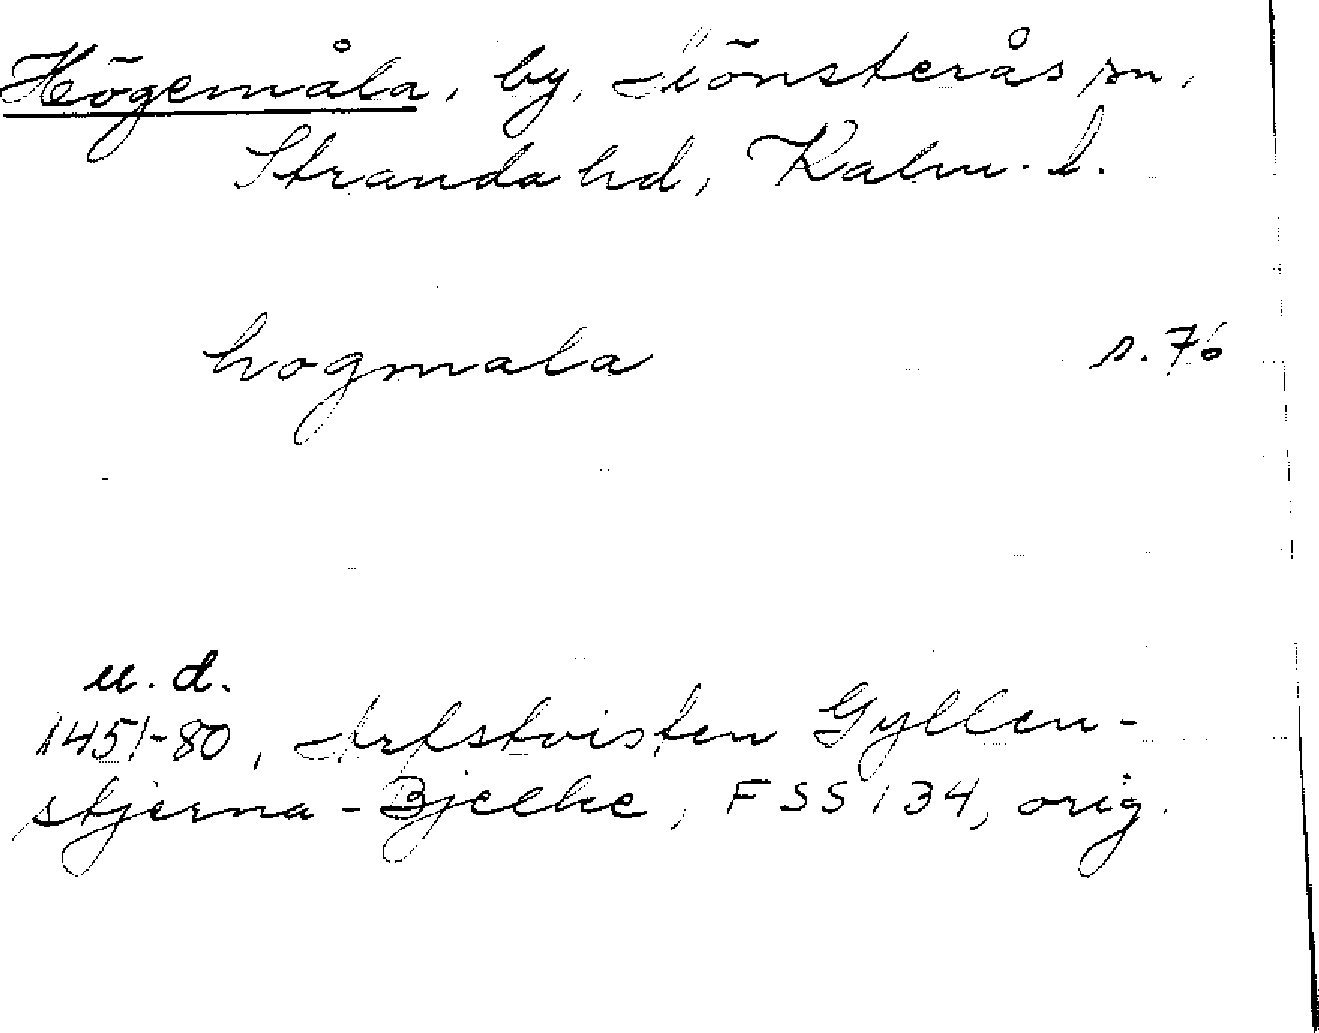 Högemåla, by, Mönsterås sn,
Stranda hd, Kalm. l.
hogmala s. 76
u. d.
1451-80, Arfstvisten Gyllen-
stjerna-Bjelke, FSS 134, orig.